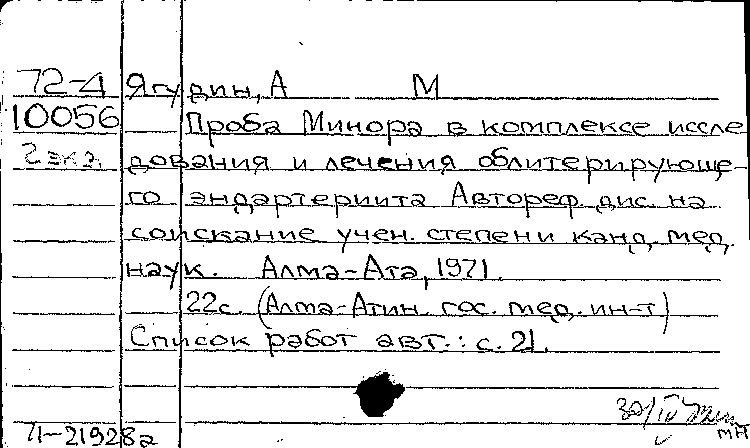 72-4 Ягудин, А М
10056 Проба Минора в комплексе иссле
2 экз. дования и лечения облитерирующе-
го эндартериита Автореф. дис. на
соискание учен. степени канд. мед.
наук. Алма-Ата, 1971.
22с. (Алма-Атин. гос. мед. ин-т)
Список работ авт.: с. 21.
30/IV
71-21928а мн